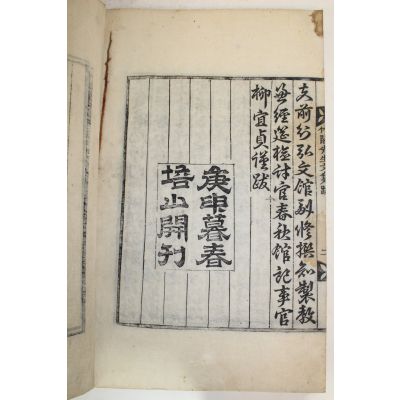 先生文集跋 二
前行弘文館副修撰知製敎
兼經筵檢討官春秋館記事官
柳宜貞謹跋
庚申暮春
開刊